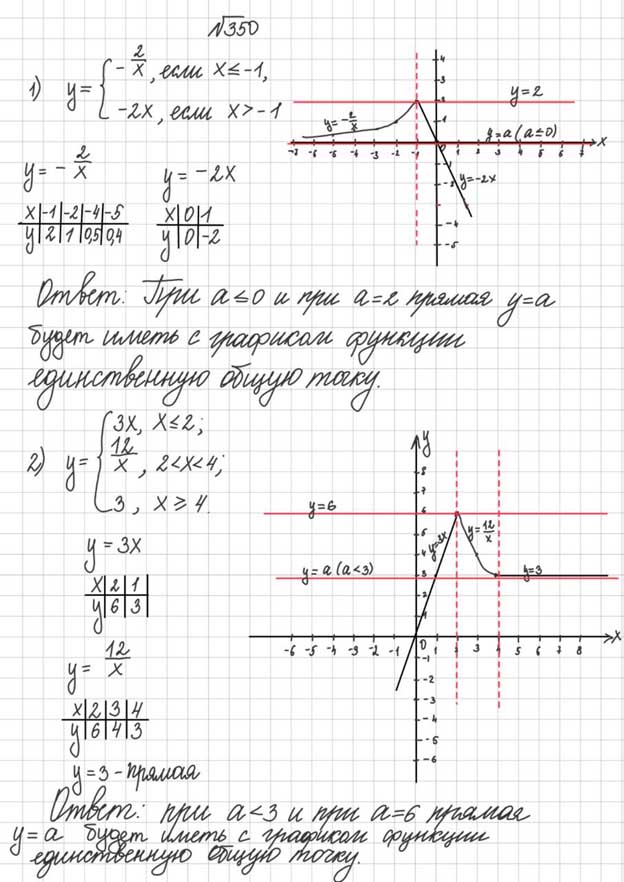 √350
1) y = { -2/x, если x ≤ -1,
-2x, если x > -1
y = -2/x   y = -2x
x | -1 | -2 | -4 | -5   x | 0 | 1
y | 2 | 1 | 0,5 | 0,4   y | 0 | -2
4
3
y = 2
2
y = -2/x
1
y = a (a ≤ 0)
-7 -6 -5 -4 -3 -2 -1 0 1 2 3 4 5 6 7 x
-1
y = -2x
-2
-4
-5
Ответ: При a ≤ 0 и при a = 2 прямая y = a
будет иметь с графиком функции
единственную общую точку.
2) y = { 3x, x ≤ 2;
12/x, 2 < x < 4;
3, x ≥ 4.
y = 3x
x | 2 | 1
y | 6 | 3
y = 12/x
x | 2 | 3 | 4
y | 6 | 4 | 3
y = 3 - прямая
y
8
7
y = 6
6
5
y = 3x
y = 12/x
4
y = a (a < 3)
3
y = 3
2
1
-6 -5 -4 -3 -2 -1 0 1 2 3 4 5 6 7 8 x
-1
-2
-3
-4
-5
-6
Ответ: при a < 3 и при a = 6 прямая
y = a будет иметь с графиком функции
единственную общую точку.